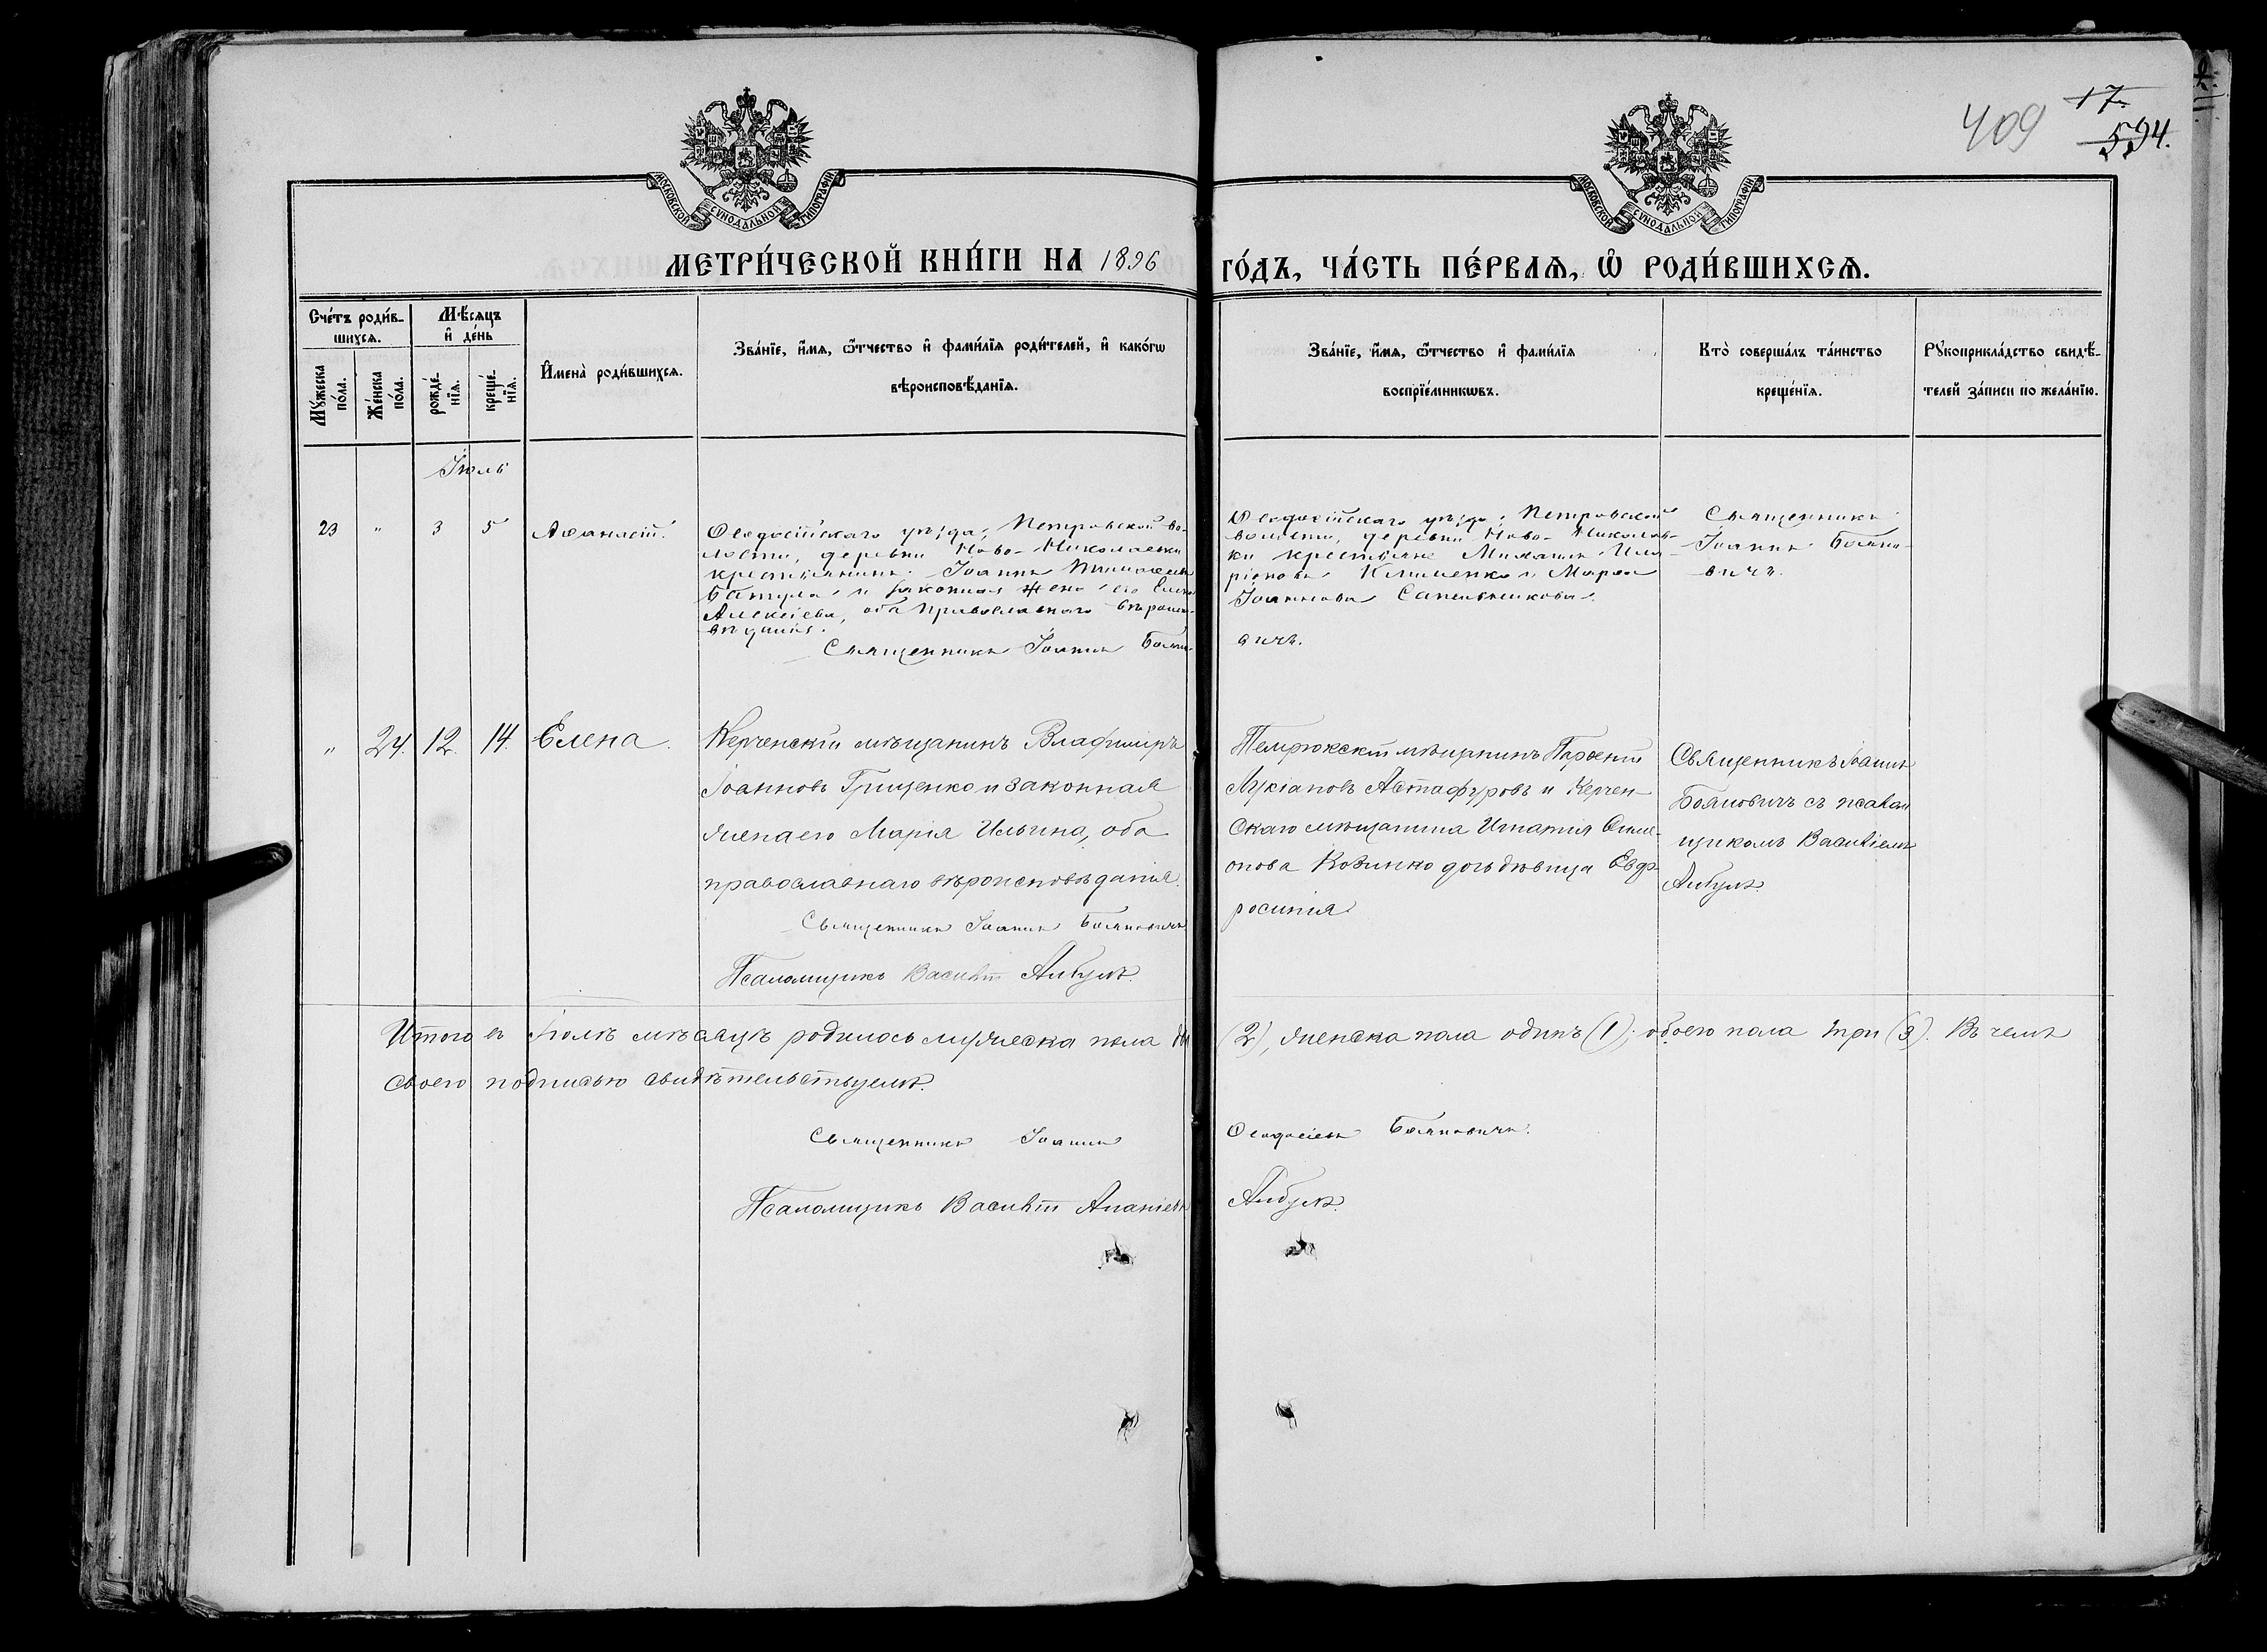 409
17.
594.
МОСКОВСКОЙ СѴНОДАЛЬНОЙ ТИПОГРАФІИ
МОСКОВСКОЙ СѴНОДАЛЬНОЙ ТИПОГРАФІИ
МЕТРИ́ЧЕСКОЙ КНИ́ГИ НА 1896
ГО́ДЪ, ЧА́СТЬ ПЕ́РВАѦ, Ѽ РОДИ́ВШИХСѦ.
Сче́тъ роди́в-
шихсѧ.
Мꙋ́жеска
по́ла.
Же́нска
по́ла.
Мѣ́сѧцъ
и҆ де́нь
рожде́-
нїѧ.
креще́-
нїѧ.
И҆мена̀ роди́вшихсѧ.
Зва́нїе, и҆́мѧ, ѻ҆́тчество и҆ фами́лїѧ роди́телей, и҆ како́гѡ
вѣроисповѣ́данїѧ.
Зва́нїе, и҆́мѧ, ѻ҆́тчество и҆ фами́лїѧ
воспрїе́мникѡвъ.
Кто̀ соверша́лъ та́инство
креще́нїѧ.
Рꙋкоприкла́дство свидѣ́-
телей за́писи по жела́нїю.
Іюль
23 " 3 5 Аѳанасій.
Ѳеодосійскаго уѣзда, Петровской во-
лости, деревни Ново-Николаевки
крестьянинъ Іоаннъ
и законная жена его Елена
Алексіева, оба православнаго вѣроиспо-
вѣданія.
Священникъ Іоаннъ Боянo-
Ѳеодосійскаго уѣзда, Петровской
волости, деревни Ново-Николаев-
ки крестьяне Ила-
ріоновъ Клименко и Марѳа
Іоаннова Сапельникова.
вичъ.
Священникъ
Іоаннъ Бояно-
вичъ.
" 24. 12. 14. Елена.
Керченскій мѣщанинъ Владиміръ
Іоанновъ Грищенко и законная
жена его Марія Ильина, оба
православнаго вѣроисповѣданія.
Священникъ Іоаннъ Бояновичъ
Псаломщикъ Василій Албулъ.
Темрюкскій мѣщанинъ Парѳеній
Лукіановъ Астафуровъ и Керчен-
скаго мѣщанина Игнатія Симе-
онова Козинко дочь дѣвица Евф-
росинія.
Священникъ Іоаннъ
Бояновичъ съ псалом
щикомъ Василіемъ
Албулъ.
Итого въ Іюлѣ мѣсяцѣ родилось мужеска пола два
(2), женска пола одинъ (1); обоего пола три (3). Въ чемъ
своею подписью свидѣтельствуемъ.
Священникъ Іоаннъ
Ѳеодосіевъ Бояновичъ.
Псаломщикъ Василій Ананіевъ
Албулъ.